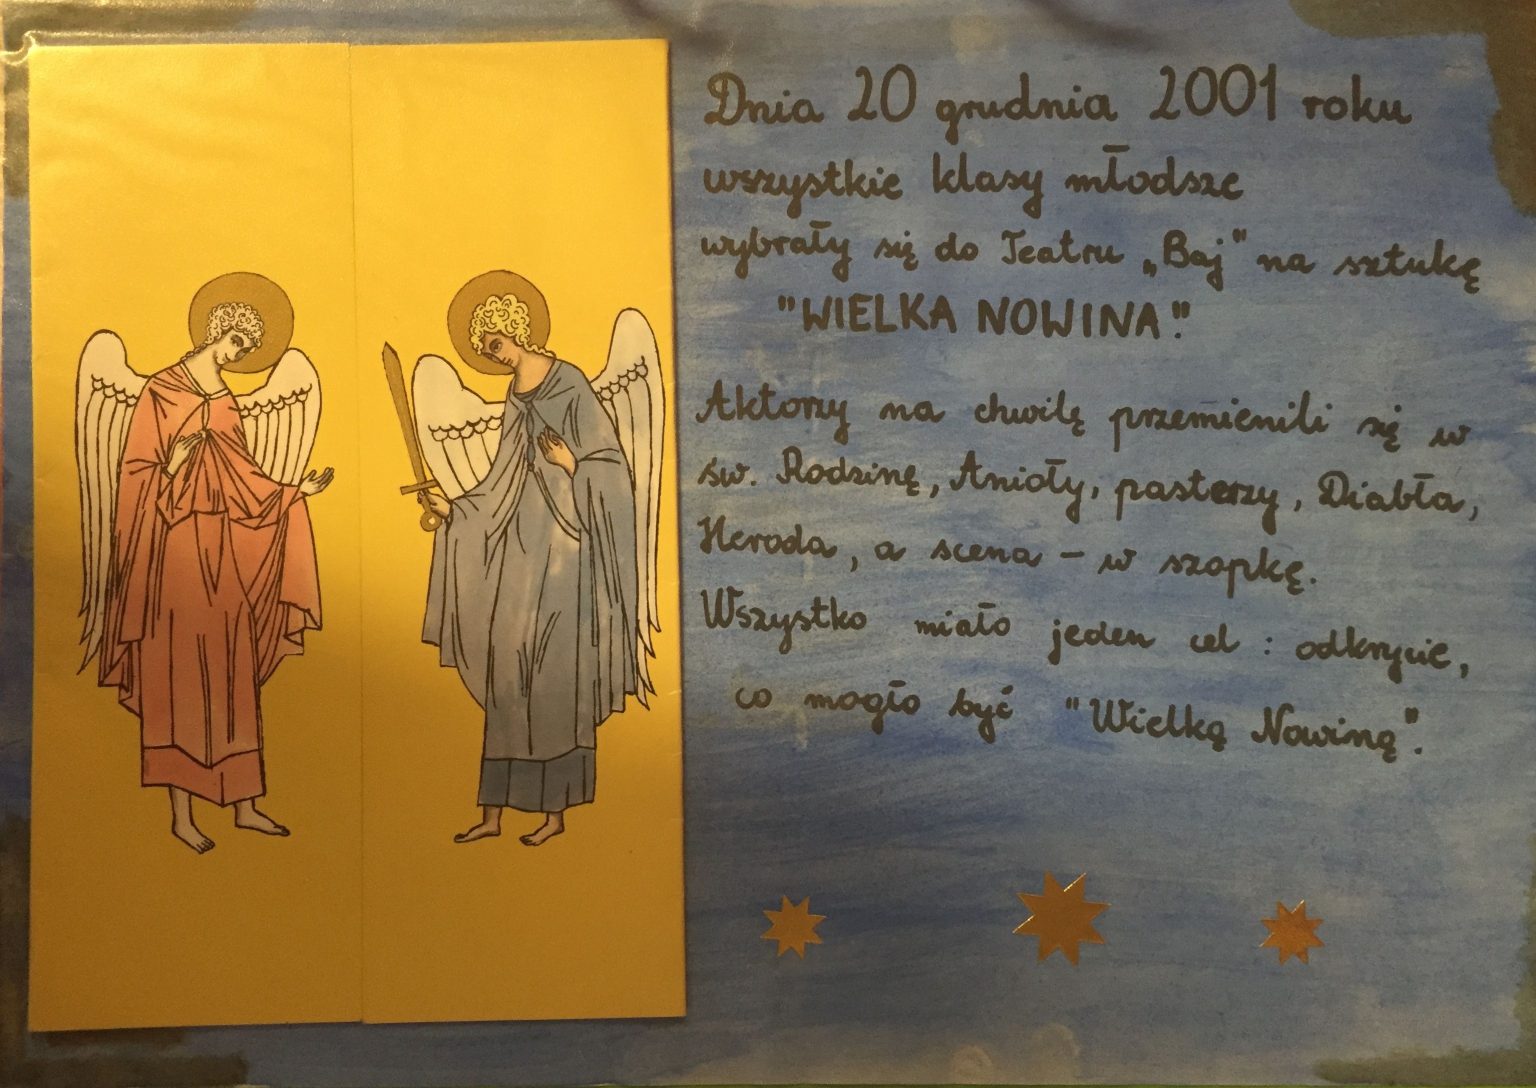 Dnia 20 grudnia 2001 roku
wszystkie klasy młodsze
wybrały się do Teatru „Baj" na sztukę
"WIELKA NOWINA".
Aktorzy na chwilę przemienili się w
św. Rodzinę, Anioły, pasterzy, Diabła,
Heroda, a scena – w szopkę.
Wszystko miało jeden cel : odkrycie,
co mogło być "Wielką Nowiną".